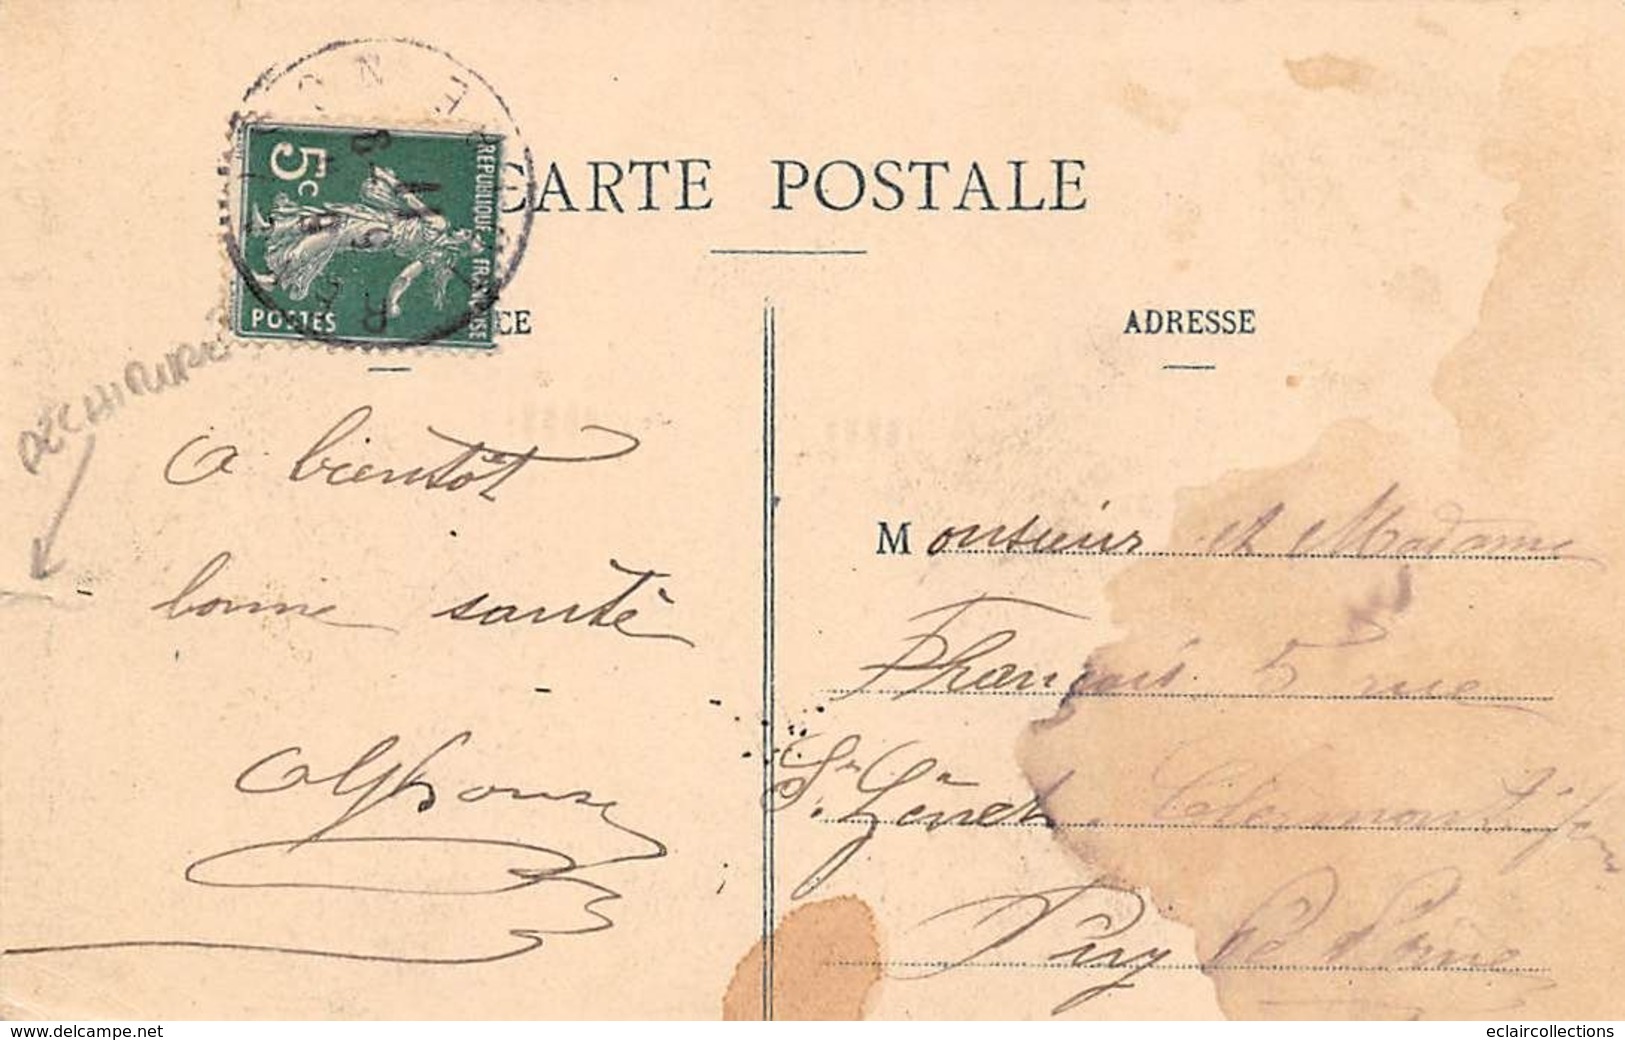 CARTE POSTALE
REPUBLIQUE FRANÇAISE
5c
POSTES
CE
ADRESSE
DÉCHIRURE
a bientôt
bonne santé
Alphonse
Monsieur et Madame
François 5 rue
St. Genet. Clermont fer
Puy De Dôme
www.delcampe.net
eclaircollections